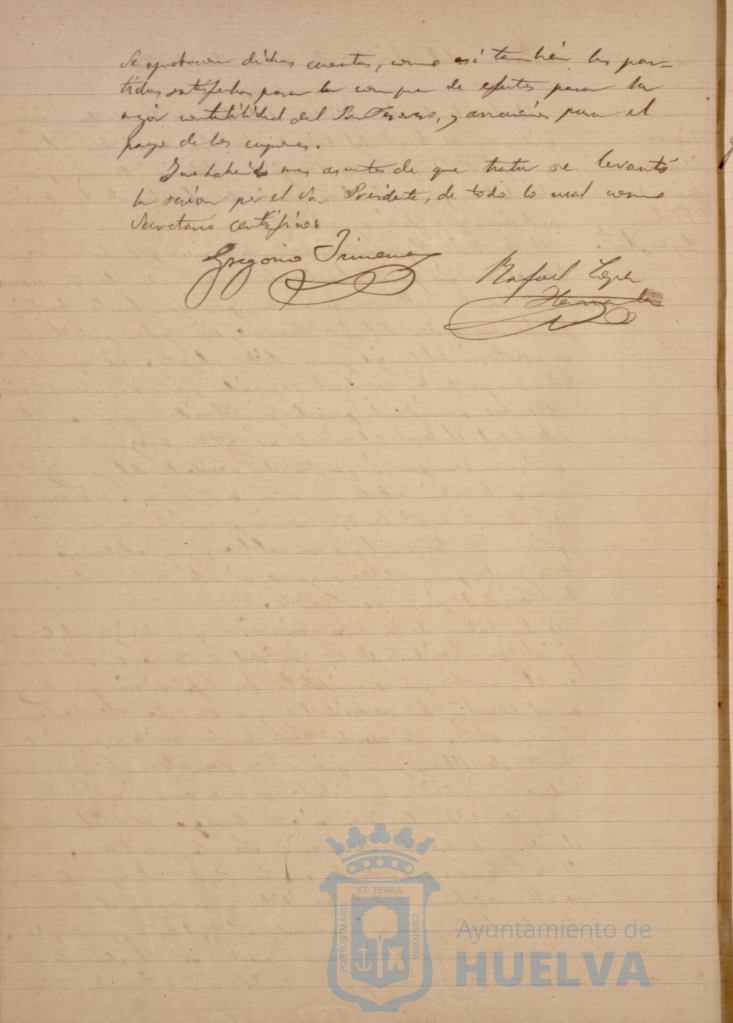 Se aprobaron dichas cuentas, como así también las par-
tidas satisfechas para la compra de efectos para la
mejor contabilidad del Sr. Tesorero, y para el
pago de los cupones.
Y no habiendo mas asuntos de que tratar se levantó
la sesion por el Sr. Presidente, de todo lo cual como
Secretario certifico:
Gregorio Jimenez
Rafael Lopez
Hernandez
ET TERRÆ
PORTUS MARIS
CUSTODIA
Ayuntamiento de
HUELVA